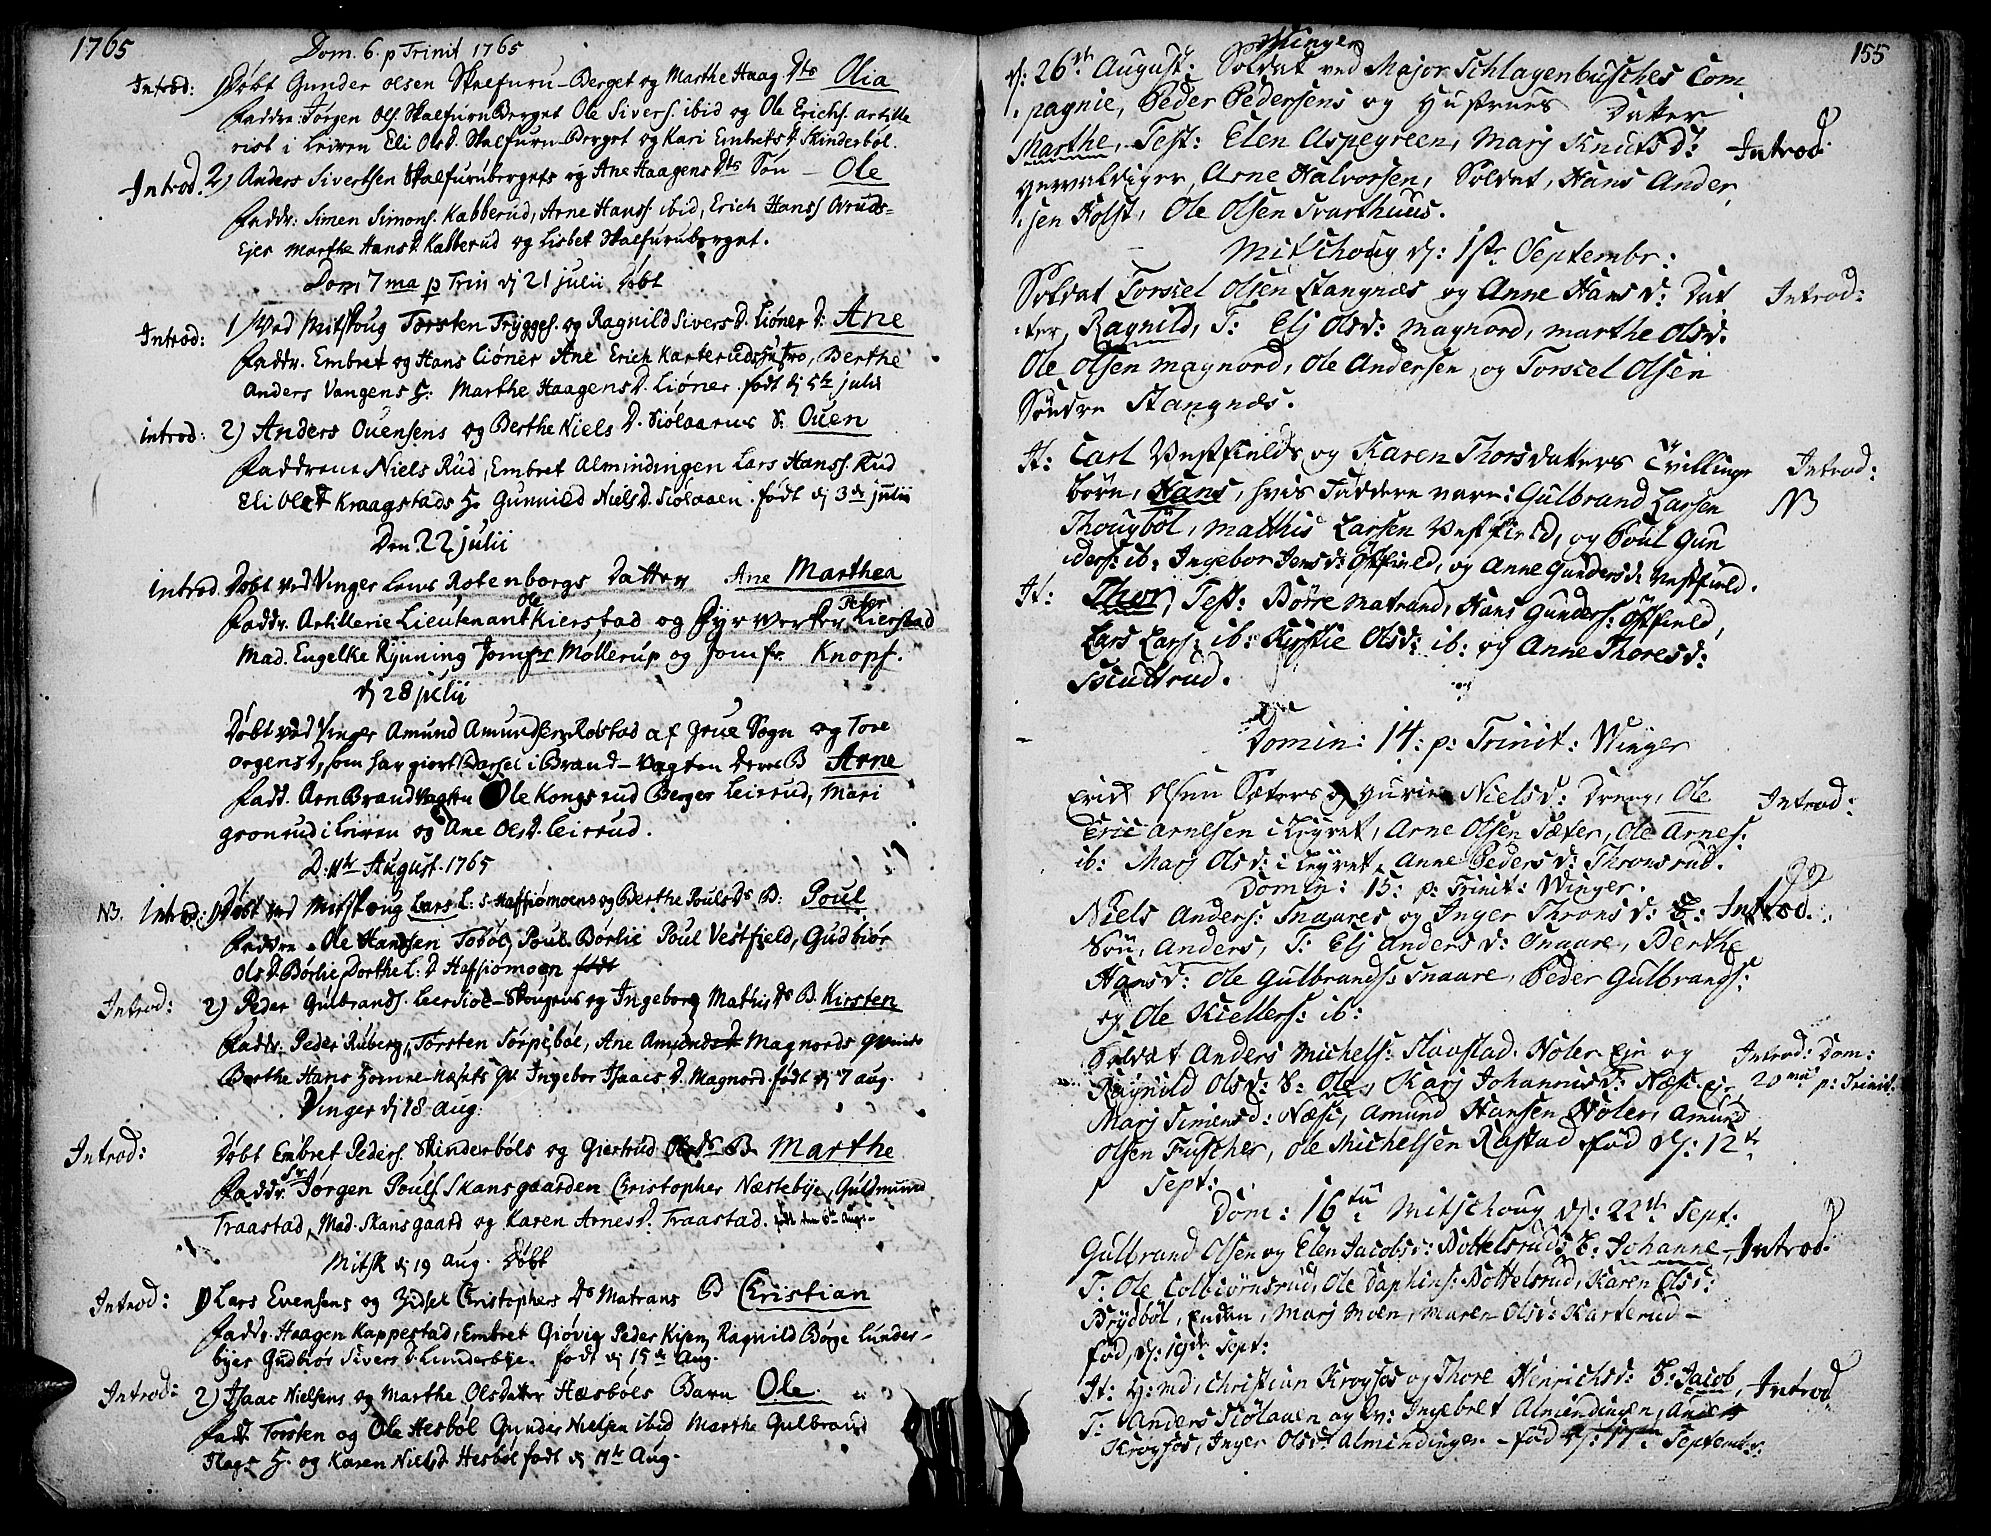 1765
Dom. 6. p Trinit 1765
Introd: 1) Døbt Gunder Olsen Skalfuru-Berget og Marthe Haag. Dts Olia
Faddre: Jørgen Ols. Skalfuru Berget Ole Sivers. ibid og Ole Erichs. artille
rist i Leiren Eli Ols D. Skalfuru-Berget og Kari Embrets D. Skinderbøl.
Introd. 2) Anders Sivertsen Skalfurubergets og Ane Haagens Dts Søn - Ole
Faddr: Simen Simons. Kabberud, Arne Hanss. ibid, Erich Hanss
Ejer Marthe Hans D. Kabberud og Lisbet Skalfuruberget.
Dom 7ma p Trin dj 21 julii døbt
Introd: 1) Ved Mitskoug Torsten Trygges. og Ragnild Sivers D. Liøner D. Ane
Faddr. Embret og Hans Liøner Ane Erich Karterud Hustro, Berthe
Anders Vangens H. Marthe Haagens D. Liøner. født dj 5te julii
introd: 2) Anders Ouensens og Berthe Niels D. Siølaarus S. Ouen
Faddrene Niels Rud, Embret Almindingen Lars Hanss. Rud
Eli Ole Kraagstads H. Gunnild Niels D. Siølaaen. født dj 3de julii
Den 22 julii
introd. Døbt ved Vinger Lens Rotenborgs Datter Ane Marthea
Faddr. Artillerie Lieutenant Ole Kierstad og Fyrverker Peter Kierstad
Mad. Engelke Rynning Jomfr Møllerup og Jomfr. Knopf.
dj 28 julii
Døbt ved Vinger Amund Amundsen Røbstad af Grue Sogn og Tore
orgens D, som har giort Barsel i Brand-Vagten deres B Arne
Fadd. Arn Brandvagten Ole Kongsrud Berger Leirud, Mari
gronrud i Leiren og Ane Ols D. Leirrud.
D. 11te August. 1765
NB. Introd: 1) Døbt ved Mitskoug Lars L: S. Hafsiømoens og Berthe Pouls Ds B: Poul
Faddre Ole Hansen Tobøl, Poul Børlie Poul Vestfield, Gudbiør
Ols D. Børlie Dorthe L: D Hafsiømoen
Introd: 2) Peder Gulbrands. Leersioe-Skougens og Ingeborg Mathis Ds B. Kirsten
Faddr. Peder Ruberg, Torsten Torpebøl, Ane Amunds Magnords qvinde
Berthe Hans Homme næsets qv Ingebor Isaacs D. Magnord. født dj 7 aug.
Vinger dj 18 aug.
Introd: Døbt Embret Peders. Skinderbøls og Giertrud Ols Ds B. Marthe
Faddr. Sr Jørgen Pouls Skansgaarden Christopher Næstebye, Guldmund
Traastad, Mad. Skansgaard og Karen Arnes D. Traastad. født den 8de Aug:
Mitsk dj 19 aug. Døbt
Introd: 1) Lars Evensens og Zidsel Christophers Ds Matrans B Christian
Faddr. Haagen Kappestad, Embret Giøvig Peder Kisen Ragnild Børge Lunder-
byes Gudbiør Sivers D. Lunderbye. født dj 15de Aug.
Introd: 2) Isaac Nielsens og Marthe Olsdatter Hæsbøls Barn Ole
Fadd. Torsten og Ole Hesbøl Gunder Nielsen ibid Marthe Gulbrand
Flags H. og Karen Niels D. Hesbøl født dj 11te Aug.
155
Winger
d: 26de August: Soldat ved Major Schlagenbusches Com
pagnie, Peder Pedersens og Hustrues Datter
Marthe, Test: Elen Aspegreen, Marj Knuts d: Introd.
gevaldiger, Arne Halvorsen, Soldat, Hans Ander
sen Holst, Ole Olsen Svarthuus.
Mitschoug d: 1ste Septembr:
Soldat Torskel Olsen Stangnæs og Anne Hans d: Dat Introd:
ter, Ragnild, T: Elj Olsd: Magnord, Marthe Olsd:
Ole Olsen Magnord, Ole Andersen, og Torskel Olsen
Søndre Stangnæs.
It: Carl Vestfields og Karen Thorsdatters Tvillinge Introd:
børn, Hans, hvis Faddere vare: Gulbrand Larsen NB
Thougbøl, Matthis Larsen Vestfield, og Poul Gun
ders: ib: Ingebor Jens d: Østfield, og Anne Gunders d: Vestfield.
It: Thor, Test: Børre Matrand, Hans Gunders: Østfield,
Lars Lars: ib: Kirstie Olsd: ib: og Anne Thores d:
Skuttrud.
Domin: 14: p: Trinit: Winger
Erich Olsen Sæters og Gurie Niels d: Dreng, Ole Introd:
Eric Arnesen i Leyret, Arne Olsen Sæter, Ole Arnes:
ib: Marj Olsd: i Leyret, Anne Peders d: Thronsrud.
Domin: 15: p: Trinit: Winger.
Niels Anders: Snaares og Inger Throns d: Introd.
Søn, Anders, T: Elj Anders d: Snaare, Berthe
Hans d: Ole Gulbrands: Snaare, Peder Gulbrands:
og Ole Kiellers: ib:
Soldat Anders Michels: Slaastad. Noler Ejr og Introd: Dom:
Ragnild Olsd: S: Ole, Karj Johannis d: Næse. ejr 20ma p: Trinit.
Marj Simens d: Næse, Amund Hansen Noler, Amund
Olsen Fuscher, Ole Michelsen Rastad fød d: 12te
Sept:
Dom: 16tu Mitschoug d: 22de Sept:
Gulbrand Olsen og Elen Jacobs d: Bottelsruds B: Johanne Introd.
T: Ole Colbiørnsrud, Ole Daphins: Bottelsrud, Karen Olsd:
Brydbøl, Enden, Marj Moen, Maren Olsd: Karterud -
fød, d: 19de Sept:
It: H: md, Christian Krogsos og Thore Henrichs d: B: Jacob, Introd
T: Anders Siølauen og Qv: Ingebret Almindingen, Anders
Krogsos, Inger Olsd: Almindingen - fød d: 17 Septembr: